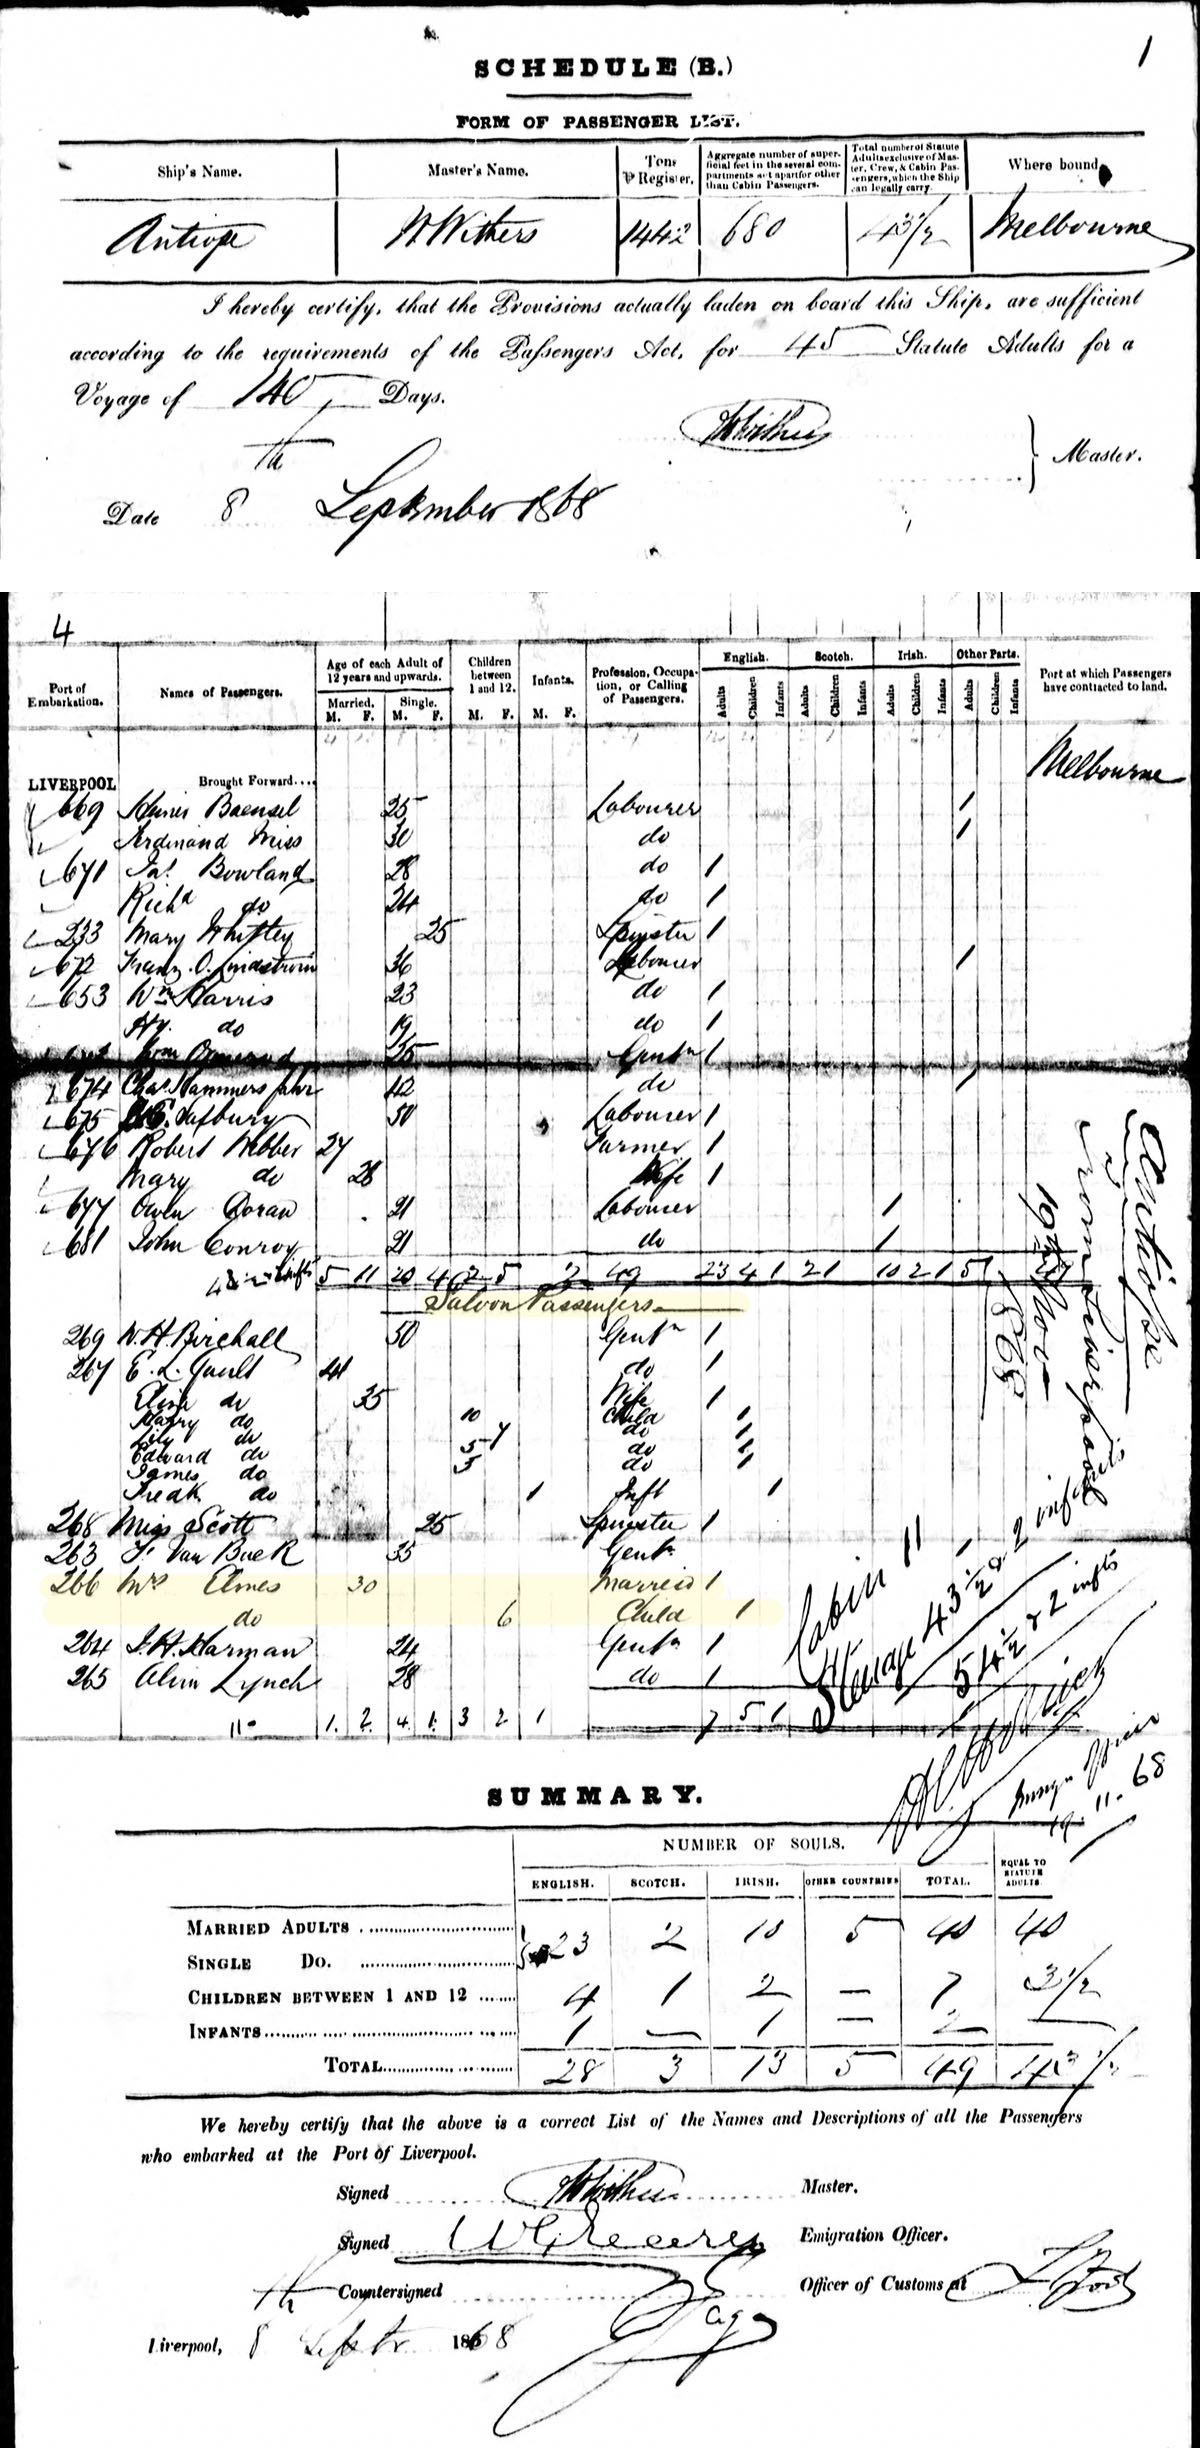 1
SCHEDULE (B.)
FORM OF PASSENGER LIST.
Ship's Name. Master's Name. Tons ⅌ Register. Aggregate number of superficial feet in the several compartments set apart for other than Cabin Passengers. Total number of Statute Adults exclusive of Master, Crew, & Cabin Passengers, which the Ship can legally carry. Where bound.
Antiope W Withers 1442 680 43½ Melbourne
I hereby certify, that the Provisions actually laden on board this Ship, are sufficient
according to the requirements of the Passengers Act, for 45 Statute Adults for a
Voyage of 140 Days.
W Withers Master.
Date 8th September 1868
4
Port of Embarkation. Names of Passengers. Age of each Adult of 12 years and upwards. Children between 1 and 12. Infants. Profession, Occupation, or Calling of Passengers. English. Scotch. Irish. Other Parts. Port at which Passengers have contracted to land.
Married. Single.
M. F. M. F. M. F. M. F. Adults Children Infants Adults Children Infants Adults Children Infants Adults Children Infants
Melbourne
LIVERPOOL Brought Forward....
669 Baensel 25 Labourer 1
Ferdinand 30 do 1
671 Jas. Bowland 28 do 1
Richd do 24 do 1
233 Mary Whitley 25 Spinster 1
672 Franz. O. Lindstrom 36 Labourer 1
653 Wm Harris 23 do 1
Hy. do 19 do 1
Wm 25 Gentn 1
674 Chas. Hammersfahr 42 do 1
675 50 Labourer 1
676 Robert Webber 27 Farmer 1
Mary do 28 Wife 1
677 Owen Doran 21 Labourer 1
681 John Conroy 21 do 1
5 11 20 4 2 5 2 49 23 4 1 2 1 10 2 1 5
Saloon Passengers
269 W. H. Birchall 50 Gentn 1
267 E. L. Gault 41 do 1
Eliza do 35 Wife 1
Harry do 10 Child 1
Lily do 7 do 1
Edward do 5 do 1
James do 3 do 1
Fredk do 1 Inft 1
268 Miss Scott 25 Spinster 1
263 F. Van Buek 35 Gentn 1
266 Mrs Elmes 30 Married 1
do 6 Child 1
264 J. H. Harman 24 Gentn 1
265 Alvin Lynch 28 do 1
11 1. 2. 4. 1. 3 2 1 7 5 1
Antiope
from Liverpool
19th Nov
1868
Cabin 11
Steerage 43½ & 2 infants
54½ & 2 infts
19-11-68
SUMMARY.
NUMBER OF SOULS.
ENGLISH. SCOTCH. IRISH. OTHER COUNTRIES TOTAL. EQUAL TO STATUTE ADULTS.
MARRIED ADULTS
SINGLE DO. 23 2 10 5 40 40
CHILDREN BETWEEN 1 AND 12 4 1 2 — 7 3½
INFANTS 1 — 1 — 2 —
TOTAL 28 3 13 5 49 43½
We hereby certify that the above is a correct List of the Names and Descriptions of all the Passengers
who embarked at the Port of Liverpool.
Signed W Withers Master.
Signed Emigration Officer.
Countersigned Officer of Customs at L'pool
Liverpool, 8th Septr 1868